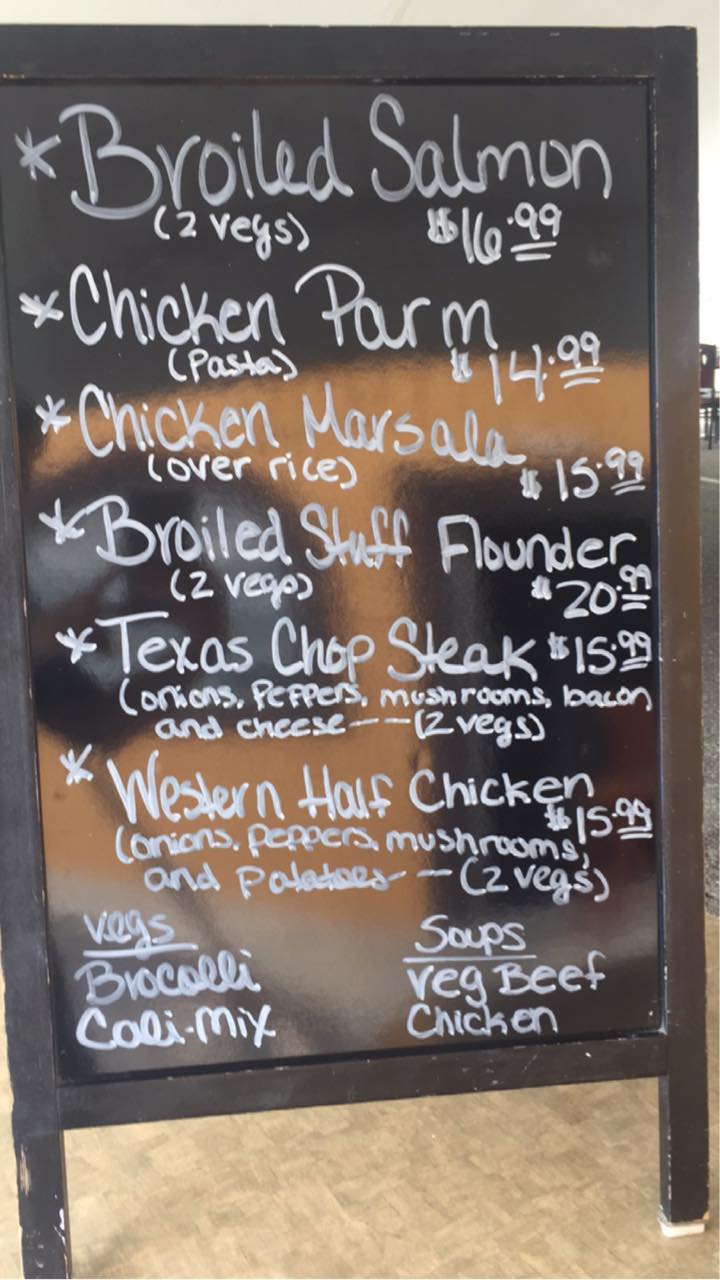 * Broiled Salmon
(2 vegs) $16.99
* Chicken Parm
(Pasta) $14.99
* Chicken Marsala
(over rice) $15.99
* Broiled Stuff Flounder
(2 vegs) $20.99
* Texas Chop Steak $15.99
(onions, Peppers, mushrooms, bacon
and cheese -- (2 vegs)
* Western Half Chicken
$15.99
(onions, Peppers, mushrooms,
and potatoes -- (2 vegs)
vegs
Brocolli
Cali-Mix
Soups
veg Beef
Chicken